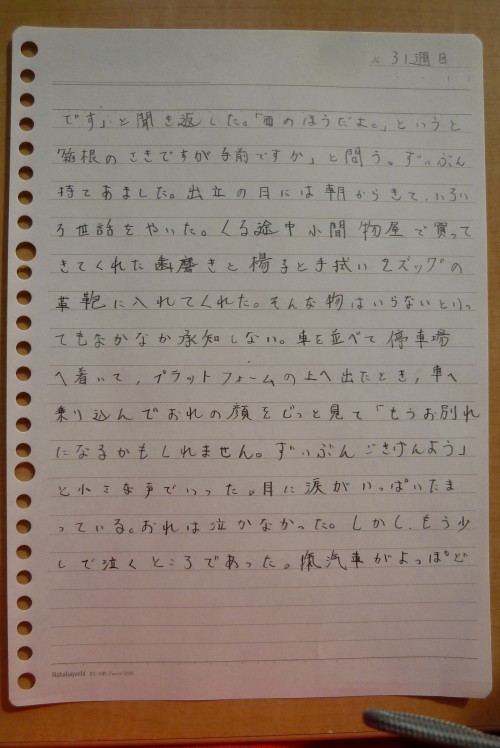 31週目
です」と聞き返した。「西のほうだよ。」というと
箱根のさきですが手前ですか」と問う。ずいぶん
持てあました。出立の日には朝からきて、いろい
ろ世話をやいた。くる途中小間物屋で買って
きてくれた歯磨きと楊子と手拭いをズックの
革鞄に入れてくれた。そんな物はいらないといっ
てもなかなか承知しない。車を並べて停車場
へ着いて、プラットフォームの上へ出たとき，車へ
乗り込んでおれの顔をじっと見て「もうお別れ
になるかもしれません。ずいぶんごきげんよう」
と小さな声でいった。目に涙がいっぱいたま
っている。おれは泣かなかった。しかし、もう少
しで泣くところであった。汽車がよっぽど
Nakabayashi